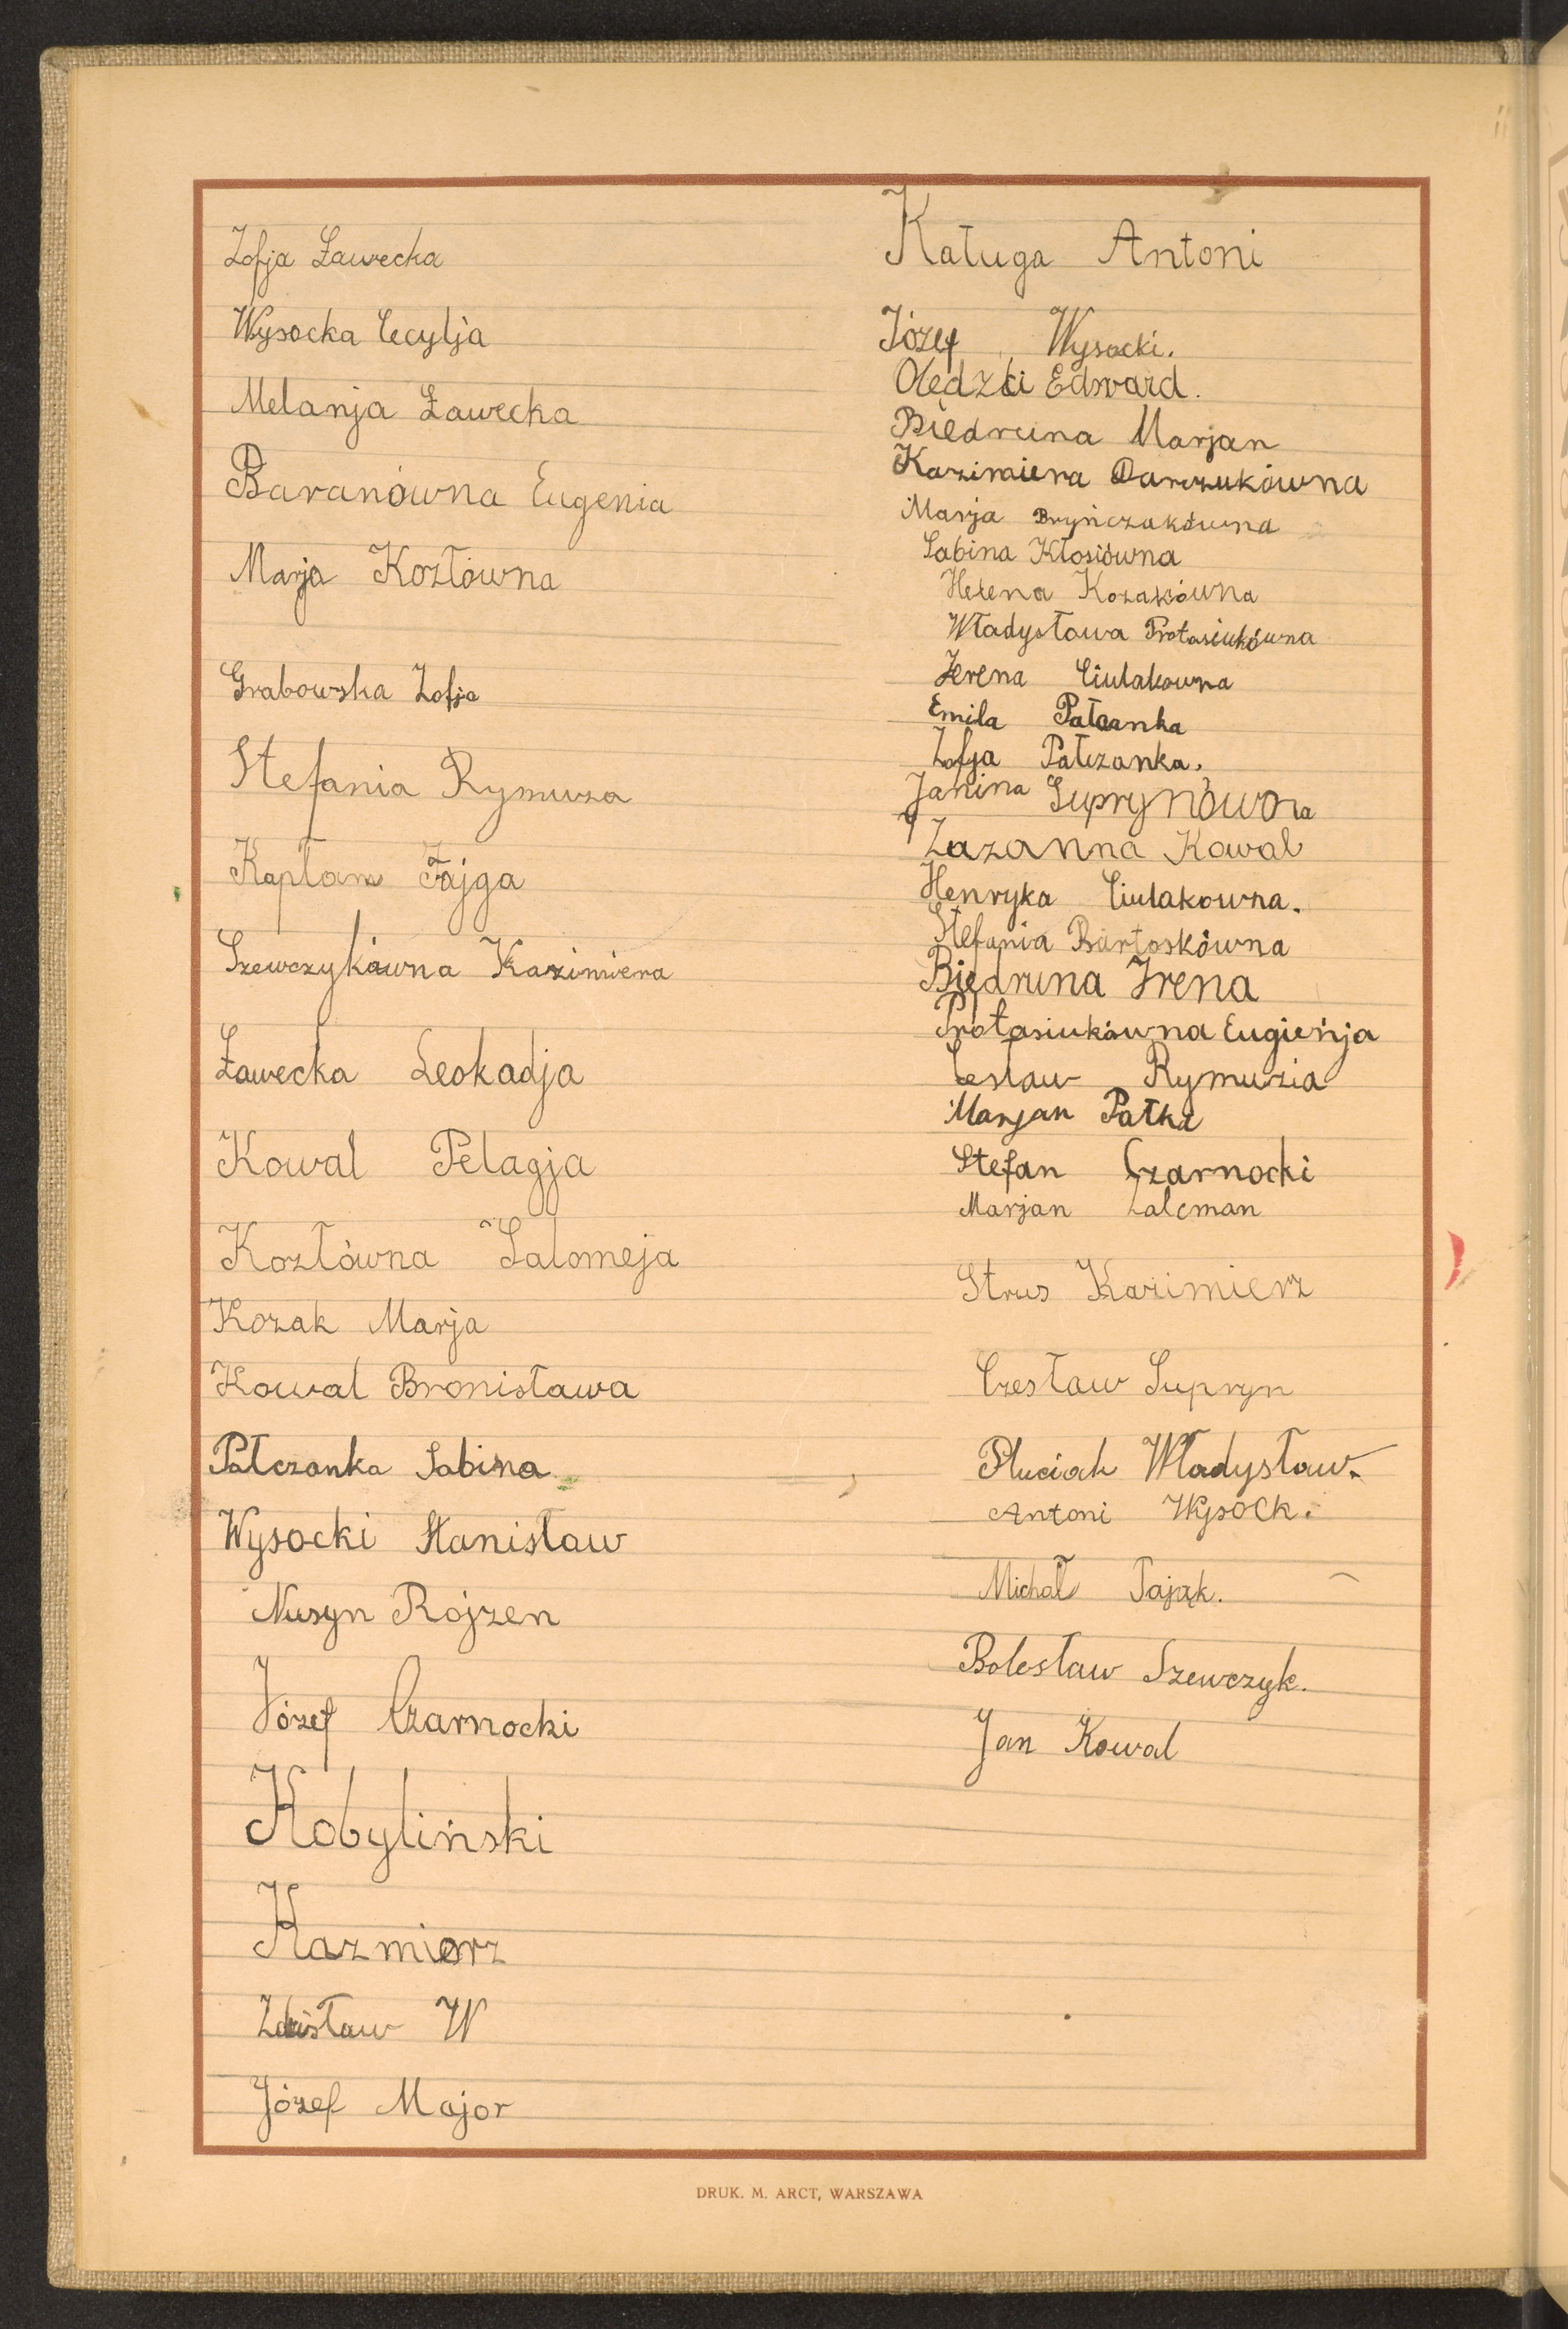 Zofja Ławecka
Wysocka Cecylja
Melanja Ławecka
Baranówna Eugenia
Marja Kozłówna
Grabowska Zofja
Stefania Rymuza
Kapłan Fajga
Szewczykówna Kazimiera
Ławecka Leokadja
Kowal Pelagja
Kozłówna Salomeja
Kozak Marja
Kowal Bronisława
Pałczanka Sabina
Wysocki Stanisław
Nusyn Rojzen
Józef Czarnocki
Kobyliński
Kazmierz
Zdzisław W
Józef Major
Kaługa Antoni
Józef Wysocki.
Olędzki Edward.
Biedruna Marjan
Kazimiera Darczukówna
Marja Bryńczakówna
Sabina Kłosiówna
Helena Kozakówna
Władysława Protasiukówna
Jrena Ciulakowna
Emila Pałczanka
Zofja Pałczanka.
Janina Suprynówna
Zuzanna Kowal
Henryka Ciulakowna.
Stefania Bartoskówna
Biedruna Jrena
Protasiukówna Eugieńja
Cesław Rymuzia
Marjan Pałka
Stefan Czarnocki
Marjan Zalcman
Strus Kazimierz
Czesław Supryn
Pluciak Władysław.
Antoni Wysocki
Michał Tająk.
Bolesław Szewczyk.
Jan Kowal
DRUK. M. ARCT, WARSZAWA